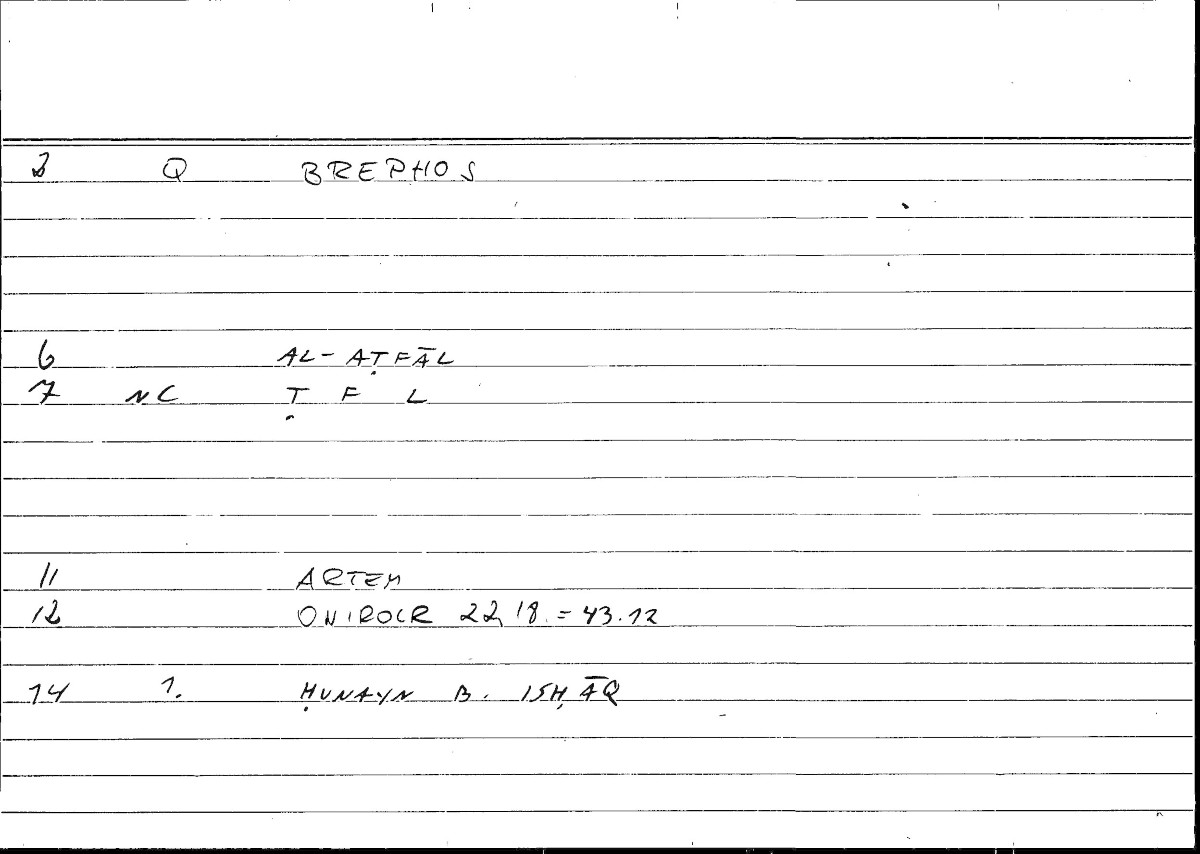 2 Q BREPHOS
6 AL-AṬFĀL
7 NC Ṭ F L
11 ARTEM
12 ONIROCR 22, 18. = 43.12
14 1. ḤUNAYN B. ISḤĀQ